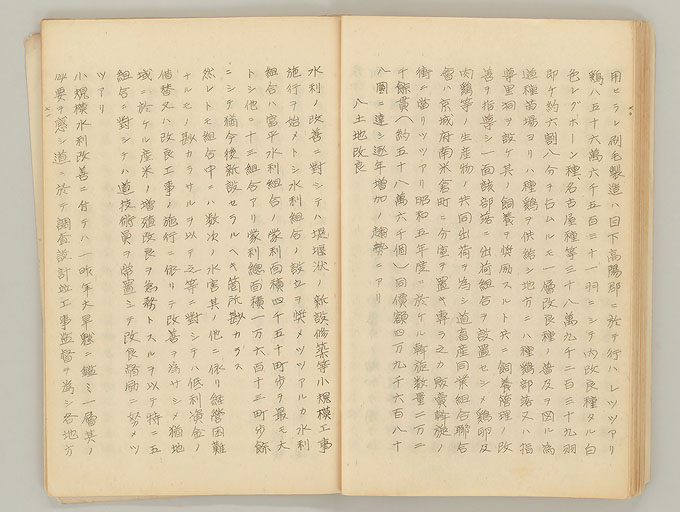 用ヒラレ刷毛製造ハ目下高陽郡ニ於テ行ハレツツアリ
鶏ハ五十六萬六千五百三十一羽ニシテ内改良種タル白
色レグホーン種名古屋種等三十八萬九千二百三十九羽
即チ約六割八分ヲ占ムルモ一層改良種ノ普及ヲ図ル為
道種苗場ヨリハ種鶏ヲ供給シ地方ニハ種鶏部落又ハ指
導里洞ヲ設ケ其ノ飼養ヲ奨励スルト共ニ飼養管理ノ改
善ヲ指導シ一面該部落ニ出荷組合ヲ設置セシメ鶏卵及
肉鶏等ノ生産物ノ共同出荷ヲ為シ道畜産同業組合聯合
會ハ京城府南米倉町ニ分室ヲ置キ専ラ之カ販賣斡旋ノ
衝ニ當リツツアリ昭和五年度ニ於ケル斡旋数量二万二
千餘貫(約五十八萬六千個)同價額四万九千六百八十
八圓ニ達シ逐年増加ノ趨勢ニアリ
八土地改良
水利ノ改善ニ對シテハ堤堰洑ノ新設修築等小規模工事
施行ヲ始メトシ水利組合ノ設立ヲ奨メツツアルカ水利
組合ハ富平水利組合ノ蒙利面積四千五十町歩ヲ最モ大
トシ他ニ十三組合アリ蒙利總面積一万六百十三町歩餘
ニシテ尚今後新設セラルヘキ箇所尠カラス
然レトモ組合中ニハ数次ノ水害其ノ他ニ依リ維營困難
ナルモノ尠カラサルヲ以テ之等ニ對シテハ低利資金ノ
借替又ハ改良工事ノ施行ニ依リテ改善ヲ為サシメ猶地
域ニ於ケル産米ノ増殖改良ヲ急務トスルヲ以テ特ニ五
組合ニ對シテハ道技術員ヲ常置シテ改良奨励ニ努メツ
ツアリ
小規模水利改善ニ付テハ一昨年大旱魃ニ鑑ミ一層其ノ
必要ヲ感シ道ニ於テ調査設計竝工事監督ヲ為シ各地方